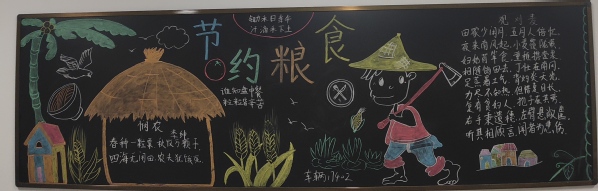 节约粮食
锄禾日当午
汗滴禾下土
谁知盘中餐
粒粒皆辛苦
悯农
李绅
春种一粒粟 秋收万颗子
四海无闲田 农夫犹饿死
观刈麦
田家少闲月 五月人倍忙
夜来南风起 小麦覆陇黄
妇姑荷箪食 童稚携壶浆
相随饷田去 丁壮在南冈
足蒸暑土气 背灼炎天光
力尽不知热 但惜夏日长
复有贫妇人 抱子在其旁
右手秉遗穗 左臂悬敝筐
听其相顾言 闻者为悲伤